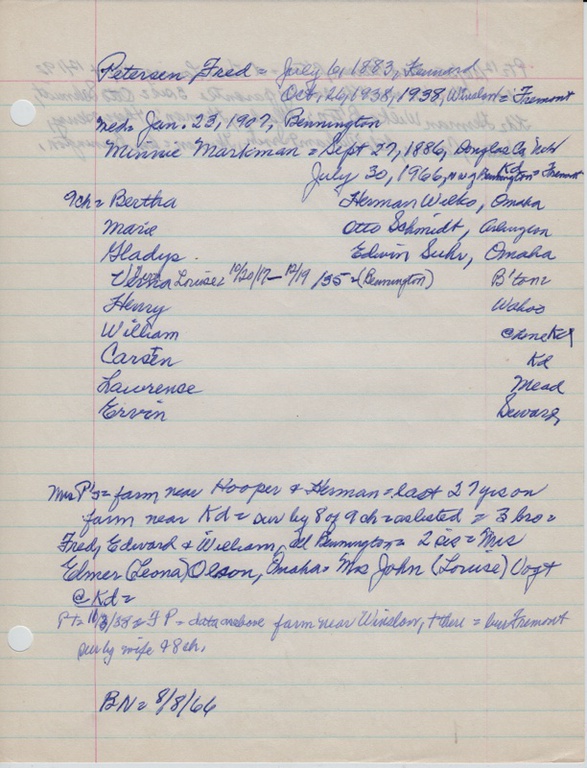 Petersen Fred = July 6, 1883, Kennard
Oct, 26, 1938, 1938, Winslow = Fremont
Neb = Jan. 23, 1907, Bennington
Minnie Markman = Sept 27, 1886, Douglas Co, Neb
July 30, 1966, nwg Bennington = Fremont Kd
9ch = Bertha Herman Wilko, Omaha
Marie Otto Schmidt, Arlington
Gladys. Edwin Suhr, Omaha
Verna Louise 10/20/17 – 12/19/35 = (Bennington) B'ton =
Henry Wahoo
William @ Kd
Carsten Kd
Lawrence Mead
Ervin Seward,
Mrs P's = farm near Hooper & Herman = last 27 yrs on
farm near Kd = sur by 8 of 9 ch = as listed = 3 bro =
Fred, Edward & William, all Bennington = 2 sis = Mrs
Elmer (Leona) Olson, Omaha = Mrs John (Louise) Vogt
@ Kd =
PT = /38 = FP = data as above farm near Winslow, + there = bur Fremont
sur by wife & 8 ch,
BN = 8/8/66